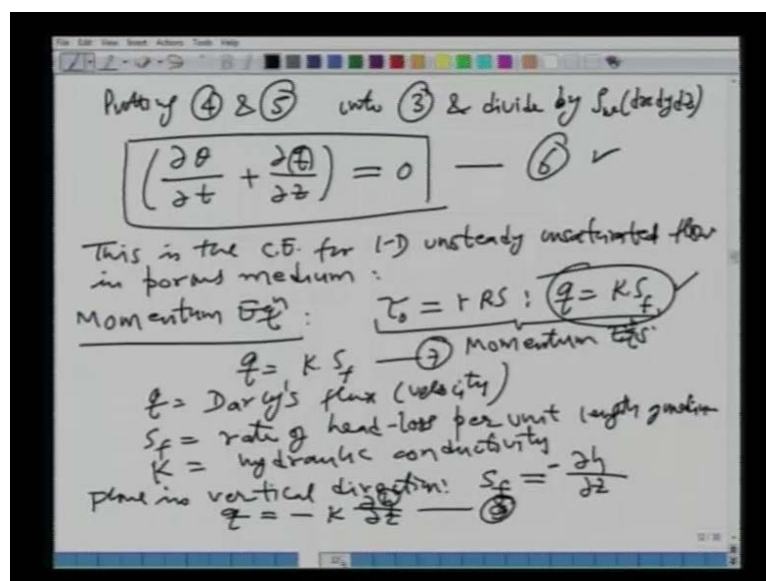 File Edit View Insert Actions Tools Help
Putting ④ & ⑤ into ③ & divide by ρw(dxdydz)
(∂θ/∂t + ∂q/∂z) = 0 — ⑥ ✓
This is the C.E. for 1-D unsteady unsaturated flow
in porous medium :
Momentum Eqn : τ₀ = γRS ; q = K Sf ✓
q = K Sf — ⑦ Momentum Eqs.
q = Darcy's flux (velocity)
Sf = rate of head-loss per unit length of medium
K = hydraulic conductivity
plane in vertical direction: Sf = - ∂h/∂z
q = - K ∂h/∂z — ⑧